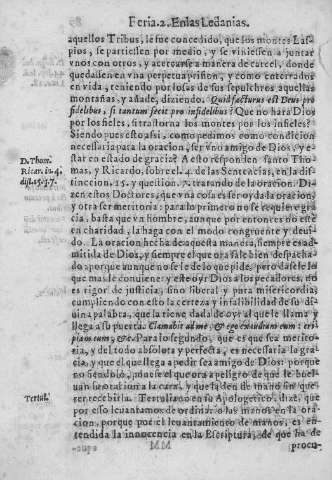 Feria.2. En las Ledanias.
aquellos Tribus, le fue concedido, que los montes Cas-
pios, se partiessen por medio, y se viniessen a juntar
vnos con otros, y acercarse a manera de carcel, donde
quedassen en vna perpetua prisiõn, y como enterrados
en vida, teniendo por losas de sus sepulchros aquellas
montañas, y añade, diziendo. Quid facturus est Deus pro
fidelibus, si tantum fecit pro infidelibus? Que no hara Dios
por los fieles, si trastorna los montes por los infieles?
Siendo pues esto assi, como pedimos como condicion
necessaria para la oracion, ser vno amigo de Dios, y es-
tar en estado de gracia? A esto responden santo Tho-
D. Thom.
mas, y Ricardo, sobre el 4. de las Sentencias, en la dis-
Ricar. in. 4.
tinccion, 15. y question. 7. tratando de la oracion. Di-
dist. 15. q. 7.
zen estos Doctores, que vna cosa es ser oyda la oracion, y
otra ser meritoria: para lo primero no se requiere gra-
cia, basta que vn hombre, aunque por entonces no esté
en charidad, la haga con el modo congruente y deui-
do. La oracion hecha de aquesta manera, siempre es ad-
mitida de Dios, y siempre el que ora sale bien despacha-
do: porque aunque no se le de lo que pide, pero dasele lo
que mas le conuiene: y este oyr Dios a los pecadores, no
es rigor de justicia, sino liberal y pura misericordia;
cumpliendo con esto la certeza y infalibilidad de su di-
uina palabra, que la tiene dada de oyr al que le llama y
llega a su puerta. Clamabit ad me, & ego exaudiam eum: eri-
piam eum, &c. Para lo segundo, que es que sea merito-
ria, y del todo absoluta y perfecta, es necessaria la gra-
cia, y que el que llega a pedir sea amigo de Dios: porque
no siendolo, pase el que ora a peligro de que le buel-
uan su oracion a la cara, y que la den de mano sin que-
Tertul.
rer recebirla. Tertuliano en su Apologetico, dize, que
por esso leuantamos de ordinario las manos en la ora-
cion, porque por el leuantamiento de manos, es en-
tendida la innocencia en la Escriptura, de que ha de
MM
procu-